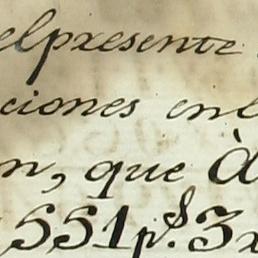 elpresente
ciones enl
n, que À
SS1 p.s 3